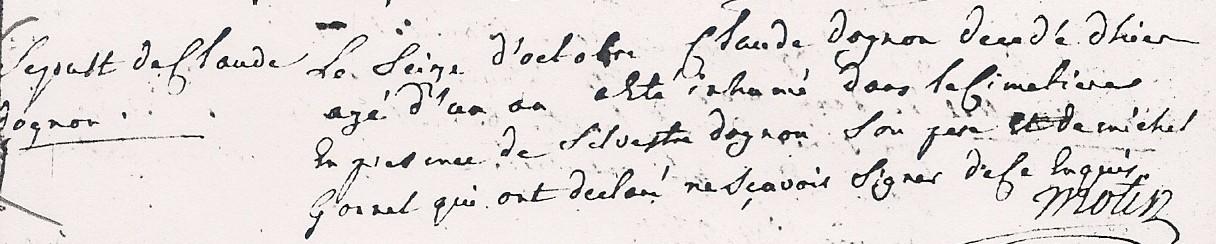 Sepult de Claude
dognon
Le Seize d'octobre Claude dognon decedé d'hier
agé d'un an a Eté inhumé dans le Cimetiere
En presence de Silvestre dognon Son pere et de michel
Gornel qui ont declaré ne Sçavoir Signer de Ce Enquis.
Motin